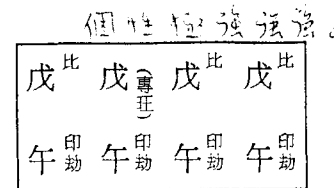 個性極強強強
戊比 戊(專旺) 戊比 戊比
午印劫 午印劫 午印劫 午印劫